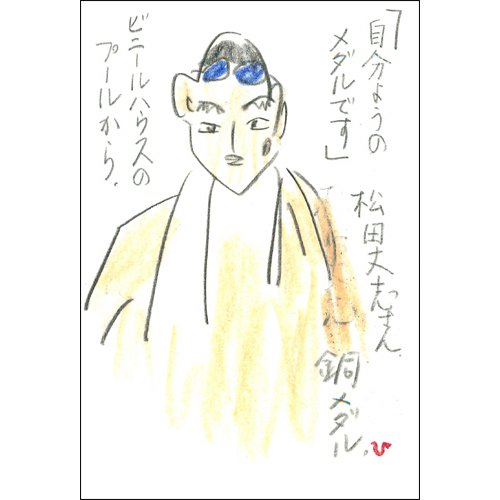 「自分ようの
メダルです」
松田丈志さん
銅メダル.
ビニールハウスの
プールから.
ひ